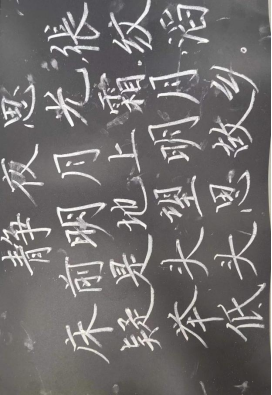 静夜思
床前明月光 张
疑是地上霜。
举头望明月
低头思故乡。